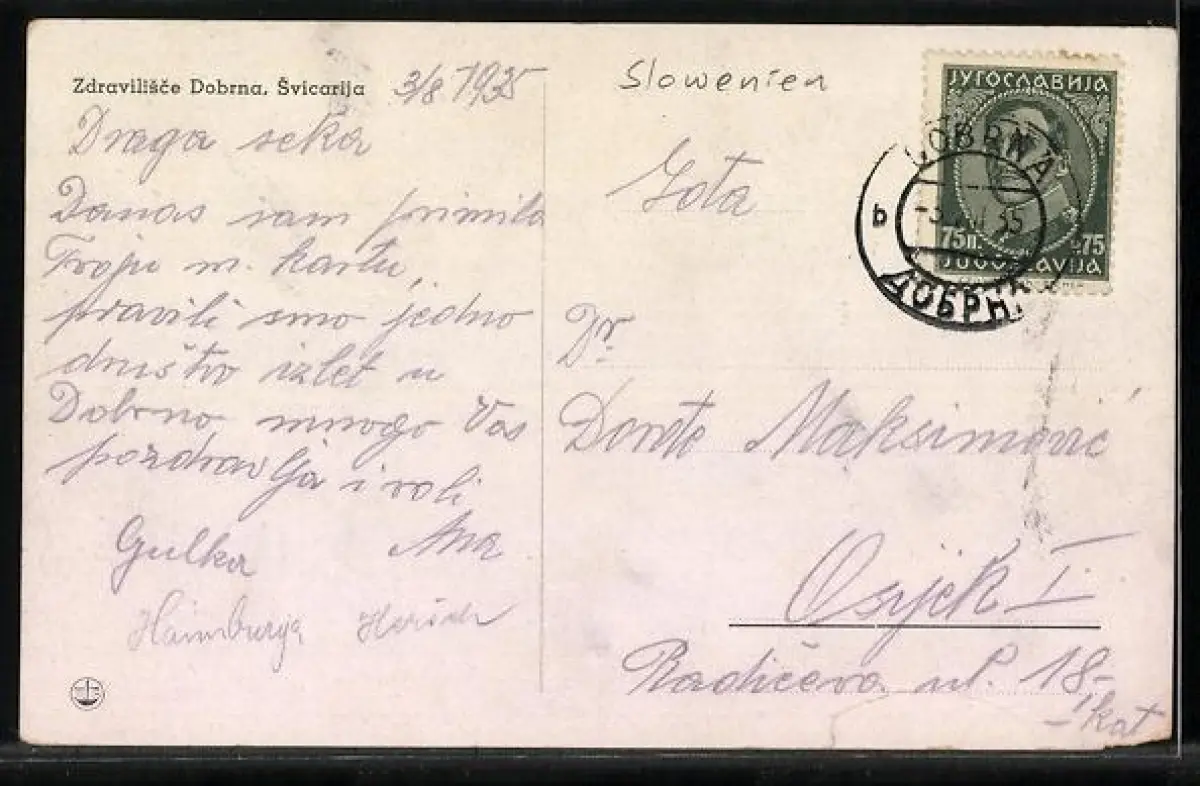 Zdravilišče Dobrna, Švicarija 3/8 1935
Draga seka
Danas sam primila
Tvoju m. kartu,
pravili smo jedno
društvo izlet u
Dobrno mnogo Vas
pozdravlja i voli
Gulka Ana
Slowenien
ЈУГОСЛАВИЈА
75п. 75
JUGOSLAVIJA
DOBRNA
b
35
ДОБРНА
Gota
Dr.
Maksimović
Osijek I.
Radićeva ul. 18-
kat